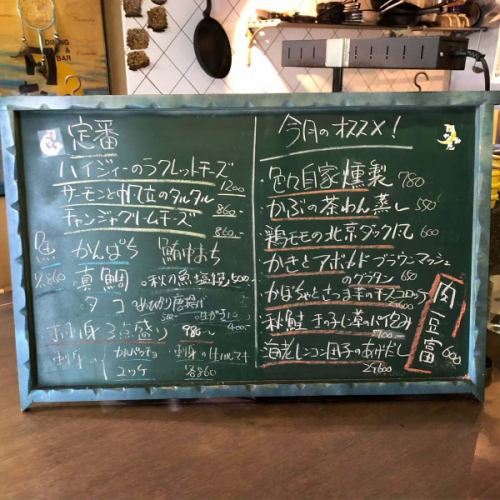 DINING & BAR
定番
ハイジィーのラクレットチーズ
1200
サーモンと帆立のタルタル
860-
チャンジャクリームチーズ
860-
魚 かんぱち 鮪中おち
各860 真鯛 秋の魚塩焼
タコ 唐揚げ
400-
お刺身3点盛り 980-
カルパッチョ 刺身の
ユッケ 各860
今月のオススメ!
色々自家燻製 780
かぶの茶わん蒸し 550
鶏モモの北京ダック風 600
かきとアボカド ブラウンマッシュ
のグラタン 650
かぼちゃとさつま芋のチーズコロッケ
秋鮭 きのこのパイ包み
海老レンコン団子のあげだし
2ケ600
肉豆富 600